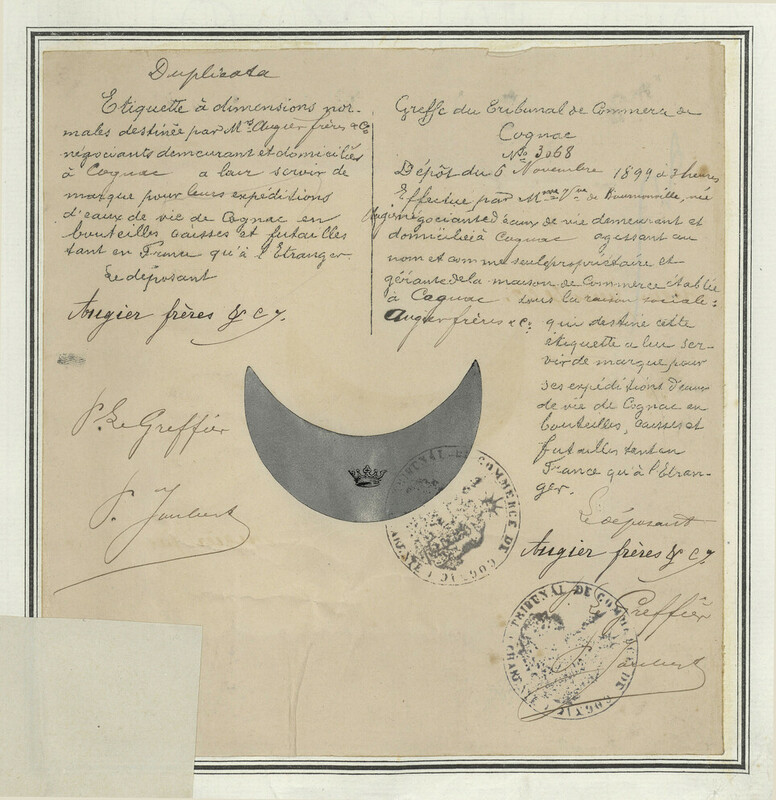 Duplicata
Etiquette à dimensions nor-
males destinée par Mrs. Augier frères & Co
négociants demeurant et domiciliés
à Cognac a leur servir de
marque pour leurs expéditions
d'eaux de vie de Cognac en
bouteilles caisses et futailles
tant en France qu'à l'Etranger.
Le déposant
Augier frères & Cy.
P. Le Greffier
P. Joubert
Greffe du Tribunal de Commerce de
Cognac
No 3068
Dépôt du 6 Novembre 1899 à 3 heures
Effectué par Mme Vve de Bournonville, née
Augier négociante d'eaux de vie demeurant et
domiciliée à Cognac agissant au
nom et comme seule propriétaire et
gérante de la maison de Commerce établie
à Cognac sous la raison sociale:
Augier frères & C: qui destine cette
étiquette a leur ser-
vir de marque pour
ses expéditions d'eaux
de vie de Cognac en
bouteilles, caisses et
futailles tant en
France qu'à l'Etran-
ger.
Le déposant
Augier frères & Cy.
Greffier
Joubert
TRIBUNAL DE COMMERCE DE COGNAC
TRIBUNAL DE COMMERCE DE COGNAC